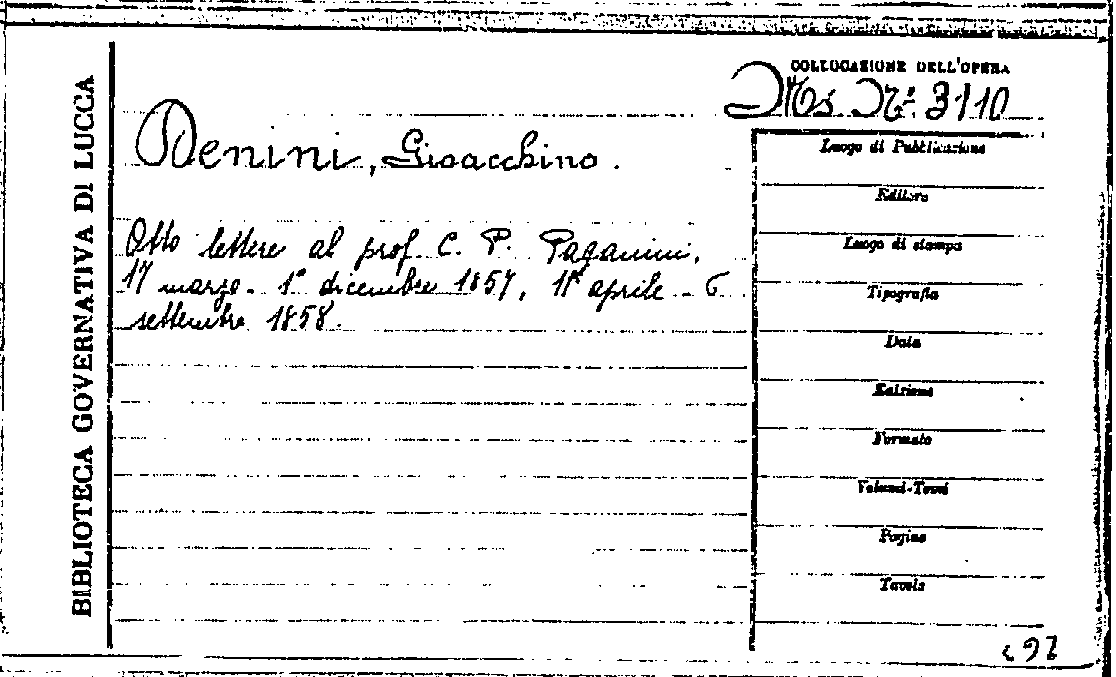 COLLOCAZIONE DELL'OPERA
Ms. N.° 3110
BIBLIOTECA GOVERNATIVA DI LUCCA
Gioacchino.
Otto lettere al prof. C. P. Paganini,
17 marzo - 1° dicembre 1857, 11 aprile - 6
settembre 1858.
Luogo di Pubblicazione
Editore
Luogo di stampa
Tipografia
Data
Edizione
Formato
Volumi-Tomi
Pagine
Tavole